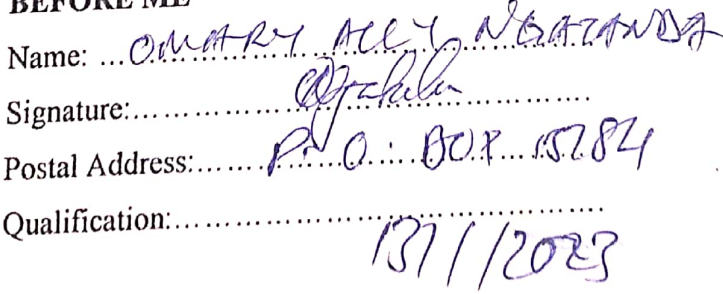 BEFORE ME
Name: ... OMARY ALLY
Signature:
Postal Address: P. O. BOX 15284
Qualification:
13/1/2023